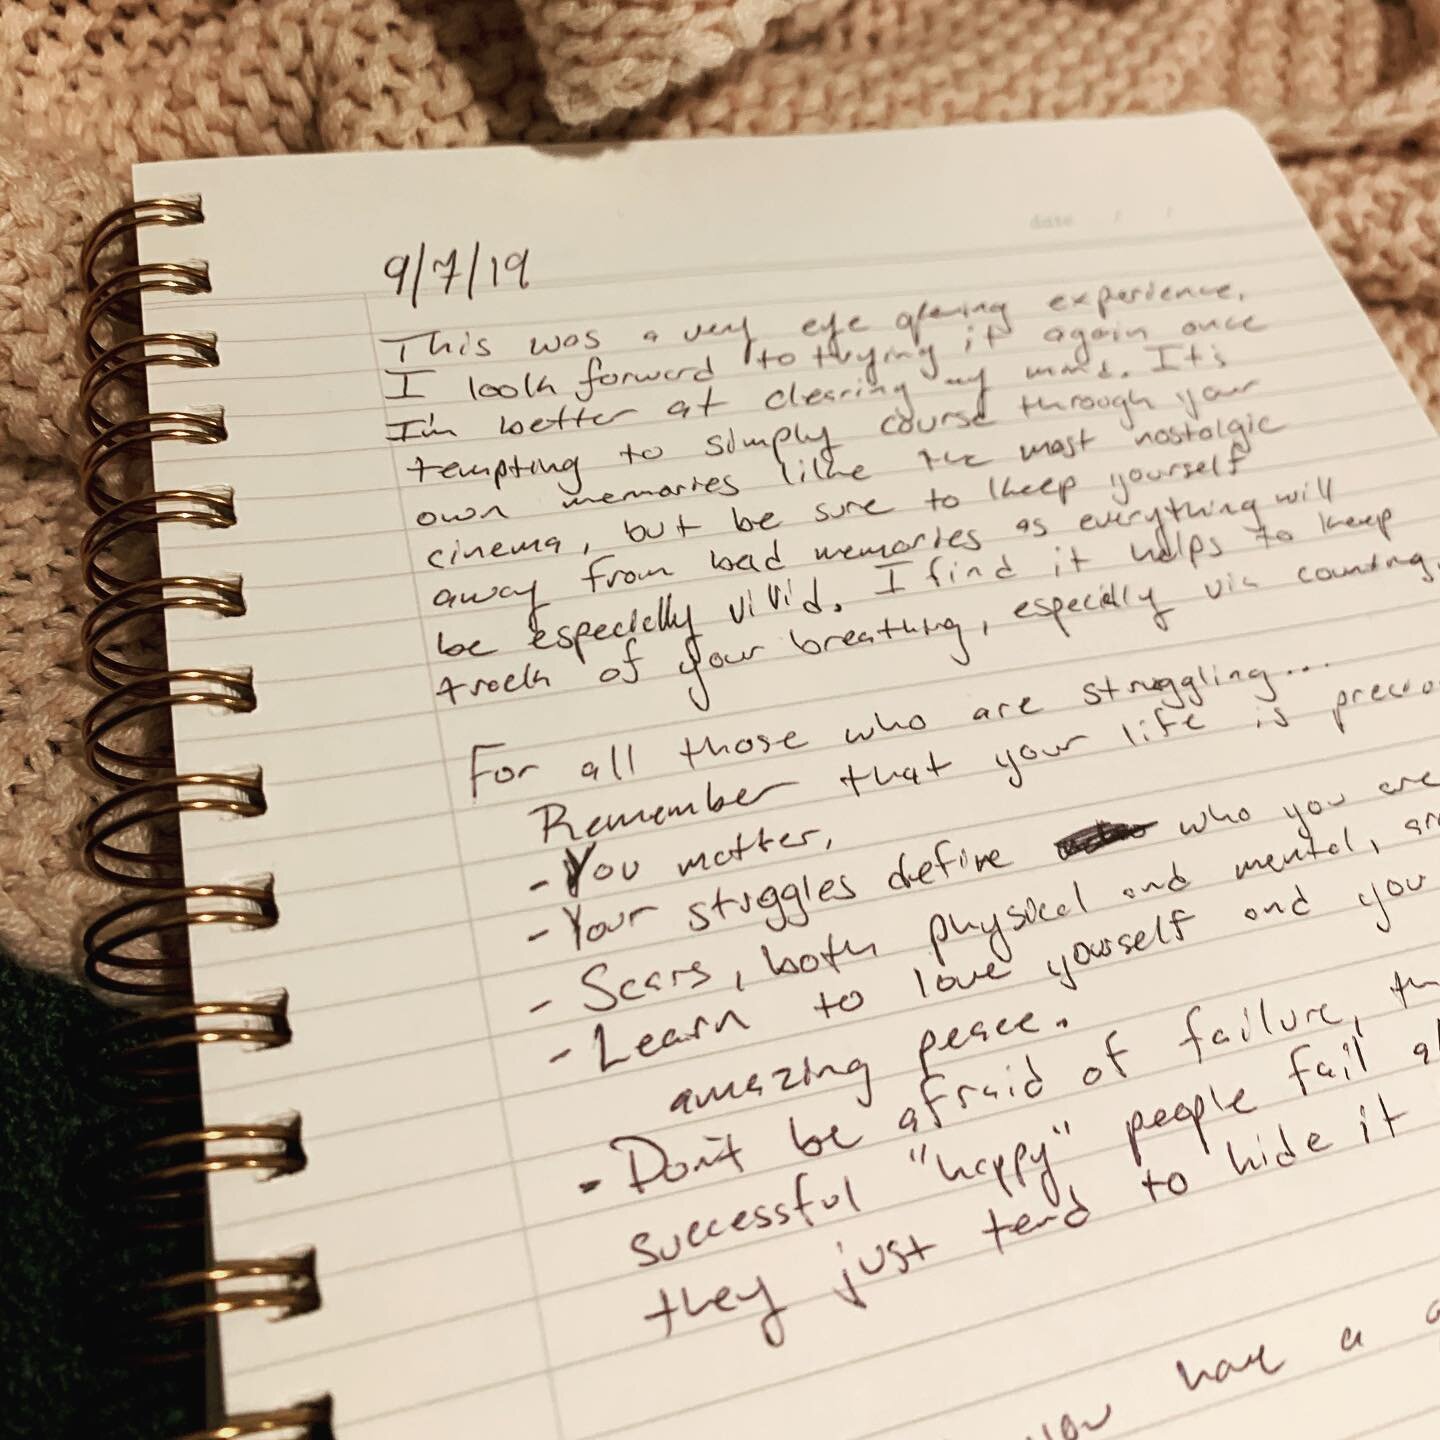 date / /
9/7/19
This was a very eye opening experience.
I look forward to trying it again once
I'm better at clearing my mind. It's
tempting to simply course through your
own memories like the most nostalgic
cinema, but be sure to keep yourself
away from bad memories as everything will
be especially vivid. I find it helps to keep
track of your breathing, especially via counting.
For all those who are struggling...
Remember that your life is
- You matter.
- Your struggles define who you are
- Scars, both physical and mental,
- Learn to love yourself and you
amazing peace.
- Don't be afraid of failure,
successful "happy" people fail
they just tend to hide it
have a